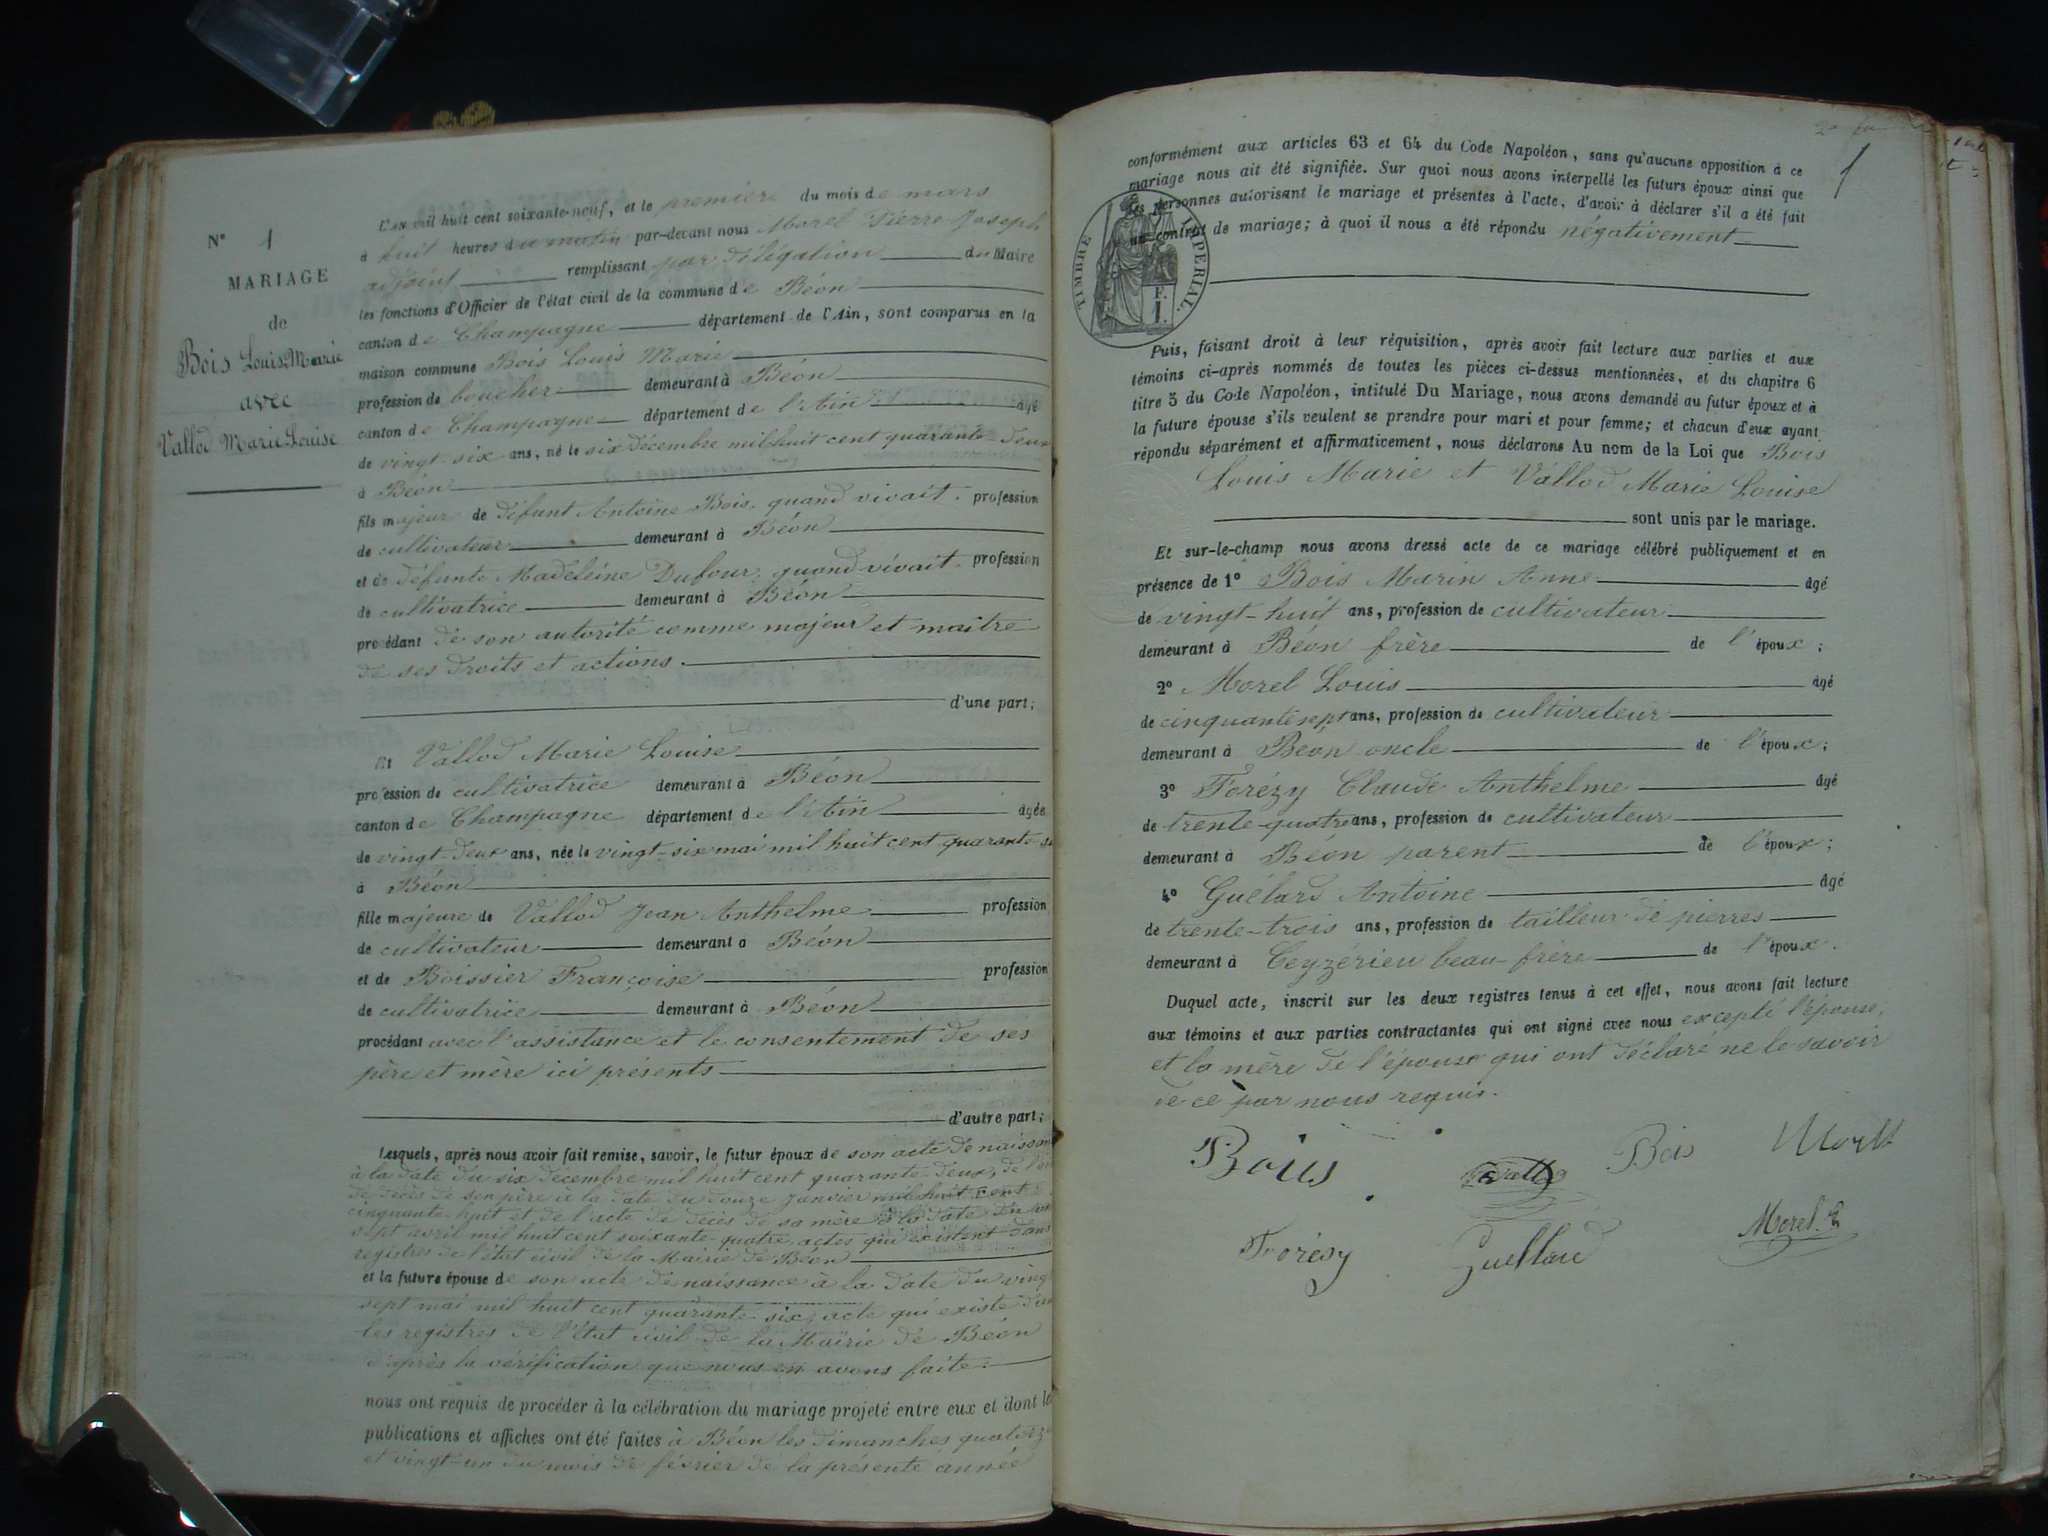 N° 1
MARIAGE
de
Bois Louis Marie
avec
Vallod Marie Louise
L'an mil huit cent soixante-neuf, et le premier du mois de mars
à huit heures du matin par-devant nous Morel Pierre Joseph
adjoint remplissant par délégation du Maire
les fonctions d'Officier de l'état civil de la commune de Béon
canton de Champagne département de l'Ain, sont comparus en la
maison commune Bois Louis Marie
profession de boucher demeurant à Béon
canton de Champagne département de l'Ain âgé
de vingt-six ans, né le six décembre mil huit cent quarante-deux
à Béon
fils majeur de défunt Antoine Bois, quand vivait profession
de cultivateur demeurant à Béon
et de défunte Madeleine Dufour, quand vivait profession
de cultivatrice demeurant à Béon
procédant de son autorité comme majeur et maître
de ses droits et actions.
d'une part;
Et Vallod Marie Louise
profession de cultivatrice demeurant à Béon
canton de Champagne département de l'Ain âgée
de vingt-deux ans, née le vingt-six mai mil huit cent quarante-
à Béon
fille majeure de Vallod Jean Anthelme profession
de cultivateur demeurant à Béon
et de Boissier Françoise profession
de cultivatrice demeurant à Béon
procédant avec l'assistance et le consentement de ses
père et mère ici présents
d'autre part;
Lesquels, après nous avoir fait remise, savoir, le futur époux de son acte de naissan
à la date du six décembre mil huit cent quarante-deux, de
de décès de son père à la date du douze janvier mil huit cent
cinquante-huit et de l'acte de décès de sa mère à la date du
sept avril mil huit cent soixante-quatre, actes qui existent dans
registres de l'état civil de la Mairie de Béon
et la future épouse de son acte de naissance à la date du vingt
sept mai mil huit cent quarante-six, acte qui existe dans
les registres de l'état civil de la Mairie de Béon
d'après la vérification que nous en avons faite.
nous ont requis de procéder à la célébration du mariage projeté entre eux et dont le
publications et affiches ont été faites à Béon les dimanches quatorze
et vingt-un du mois de février de la présente année
1
conformément aux articles 63 et 64 du Code Napoléon, sans qu'aucune opposition à ce
mariage nous ait été signifiée. Sur quoi nous avons interpellé les futurs époux ainsi que
les personnes autorisant le mariage et présentes à l'acte, d'avoir à déclarer s'il a été fait
un contrat de mariage; à quoi il nous a été répondu négativement
TIMBRE IMPERIAL.
F.
1.
Puis, faisant droit à leur réquisition, après avoir fait lecture aux parties et aux
témoins ci-après nommés de toutes les pièces ci-dessus mentionnées, et du chapitre 6
titre 5 du Code Napoléon, intitulé Du Mariage, nous avons demandé au futur époux et à
la future épouse s'ils veulent se prendre pour mari et pour femme; et chacun d'eux ayant
répondu séparément et affirmativement, nous déclarons Au nom de la Loi que Bois
Louis Marie et Vallod Marie Louise
sont unis par le mariage.
Et sur-le-champ nous avons dressé acte de ce mariage célébré publiquement et en
présence de 1° Bois Marin Anne âgé
de vingt-huit ans, profession de cultivateur
demeurant à Béon frère de l'époux;
2° Morel Louis âgé
de cinquante sept ans, profession de cultivateur
demeurant à Béon oncle de l'époux;
3° Forézy Claude Anthelme âgé
de trente-quatre ans, profession de cultivateur
demeurant à Béon parent de l'époux;
4° Guélard Antoine âgé
de trente-trois ans, profession de tailleur de pierres
demeurant à Ceyzérieu beau-frère de l'époux.
Duquel acte, inscrit sur les deux registres tenus à cet effet, nous avons fait lecture
aux témoins et aux parties contractantes qui ont signé avec nous excepté l'épouse,
et la mère de l'épouse qui ont déclaré ne le savoir
de ce par nous requis.
Bois
Bois Morel
Forésy Guellard Morel